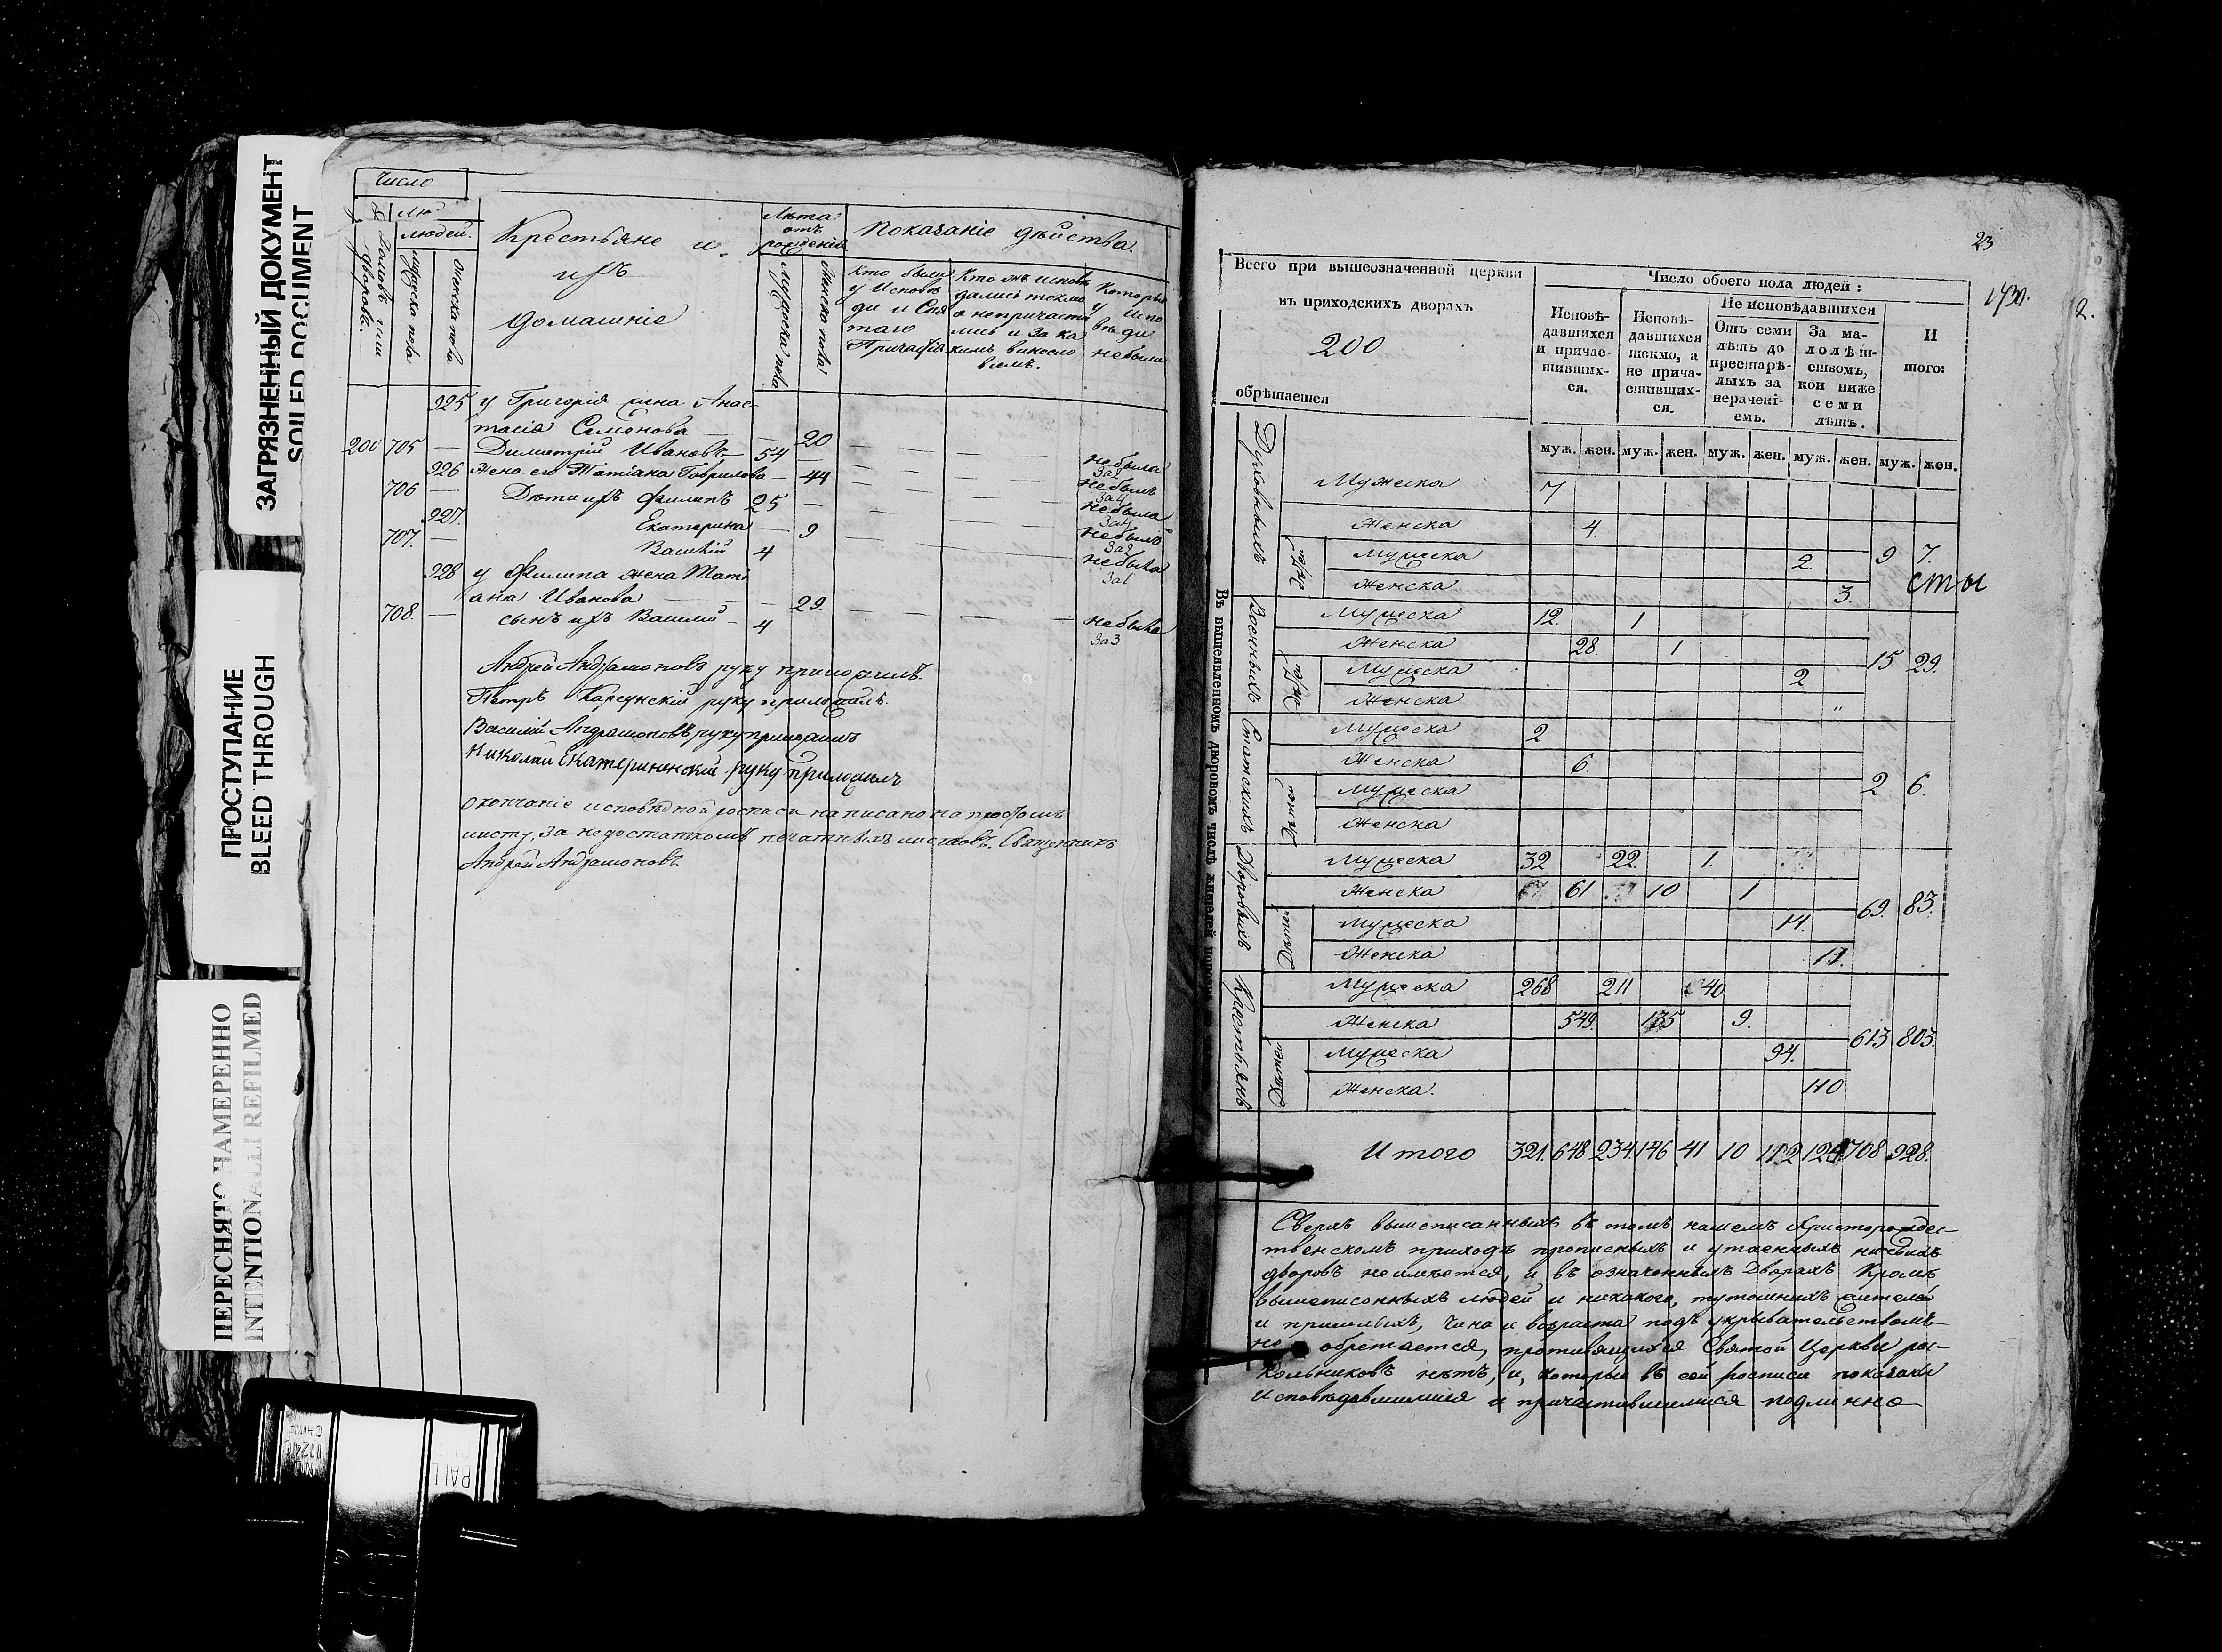 ЗАГРЯЗНЕННЫЙ ДОКУМЕНТ
SOILED DOCUMENT
ПРОСТУПАНИЕ
BLEED THROUGH
ПЕРЕСНЯТО НАМЕРЕННО
INTENTIONALLY REFILMED
Число
людей.
домовъ или дворовъ.
мужеска пола
женска пола
Крестьяне и
ихъ
домашніе
Лѣта
отъ
рожденія
Мужеска пола
Женска пола
Показаніе дѣйства.
Кто были у Исповѣди и Святаго Причастія
Кто же исповѣдались токмо а непричастились и за какимъ винословіемъ.
Которые у Исповѣди небыли
925 у Григорія жена Анас-
тасія Семенова — 20
200 705 — Димитрій Ивановъ 54 небыла
926 жена его Татіана Гаврилова — 44 За2 небылъ
706 — Дѣти ихъ Филипъ 25 — небыла
927. Екатерина — 9 небылъ
707. — Василій 4 За2 небыла
928 у Филипа жена Тати
ана Иванова — 29.
708. — сынъ ихъ Василій — 4 небыла
За3
Андрей Андрамоновъ руку приложилъ.
Петръ Карсунскій руку приложилъ.
Василій Андрамоновъ руку приложилъ
Николай Екатерининскій руку приложилъ
Окончаніе исповѣдной росписи написано на простомъ
листу, за недостаткомъ печатныхъ листовъ. Священникъ
Андрей Андрамоновъ.
23
1730.
2.
Всего при вышеозначенной церкви
въ приходскихъ дворахъ
200
обрѣтается
Число обоего пола людей :
Исповѣ-
давшихся
и причас-
тивших-
ся.
Исповѣ-
давшихся
токмо, а
не прича-
стивших-
ся.
Не исповѣдавшихся
Отъ семи
лѣтъ до
престарѣ-
лыхъ за
нерачені-
емъ.
За ма-
лолѣт-
ствомъ,
кои ниже
семи
лѣтъ.
И
того:
муж. жен. муж. жен. муж. жен. муж. жен. муж. жен.
Въ вышеявленномъ дворовомъ числѣ жителей
Духовныхъ
Мужеска 7
Женска 4.
Дѣтей
Мужеска 2. 9 7.
Женска 3. сты
Военныхъ
Мужеска 12. 1
Женска 28. 1 15 29.
Дѣтей
Мужеска 2
Женска „
Статскихъ
Мужеска 2
Женска 6. 2 6.
Дѣтей
Мужеска
Женска
Дворовыхъ
Мужеска 32 22. 1.
Женска 61 10 1 69. 83.
Дѣтей
Мужеска 14.
Женска 11.
Крестьянъ
Мужеска 268 211 40
Женска 549. 135 9. 613 803.
Дѣтей
Мужеска 94.
Женска. 110
Итого 321. 648 234 146 41 10 112 124 708 928.
Сверхъ вышеписанныхъ въ томъ нашемъ Христорождес-
твенскомъ приходѣ прописныхъ и утаенныхъ никакихъ
дворовъ неимѣется, и въ означенныхъ дворахъ кромѣ
вышеписанныхъ людей и никакого, тутошнихъ жителей
и пришлыхъ, чина и возраста подъ укрывательствомъ
не обретается, противящихся Святой Церкви рас-
кольниковъ нѣтъ, и, которые въ сей росписи показаны
Исповѣдавшимися и причастившимися подлинно